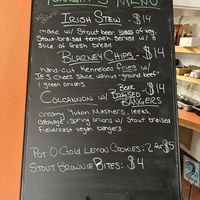 MENU
IRISH STEW - $14
made w/ Stout beer, loads of veg,
Stout braised tempeh. Served w/ a
slice of fresh bread
BLARNEY CHIPS - $14
hand-cut Kennebec fries w/
cheez sauce, walnut-ground beef
+ green onions
COLCANNON w/ BEER BRAISED BANGERS - $14
creamy Yukon Mashers, leeks,
cabbage, spring onions w/ Stout braised
fieldroast vegan bangers
POT O GOLD LEMON COOKIES: 2 for $5
STOUT BROWNIE BITES: $4